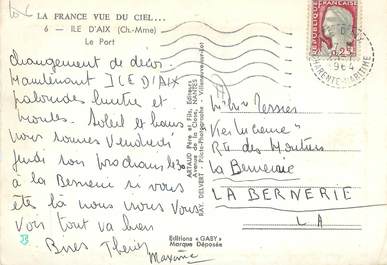 LA FRANCE VUE DU CIEL...
6 - ILE D'AIX (Ch.-Mme)
Le Port
changement de décor
Maintenant ILE D'AIX
palourdes huitres et
moules. Soleil et beau
nous sommes Vendredi
jeudi soir prochain
à la Bernerie si vous
êtes là nous vous
tout va bien
Bises Thérèse
Maxime
ARTAUD Père et Fils, Editeurs
Avenue de la Close, NANTES
RAY. DELVERT - Pilote-Photographe - Villeneuve-sur-Lot
Editions «GABY»
Marque Déposée
REPUBLIQUE FRANÇAISE
0,25
CHARENTE-MARITIME
Rte des Moutiers
La Bernerie
LA BERNERIE
L A